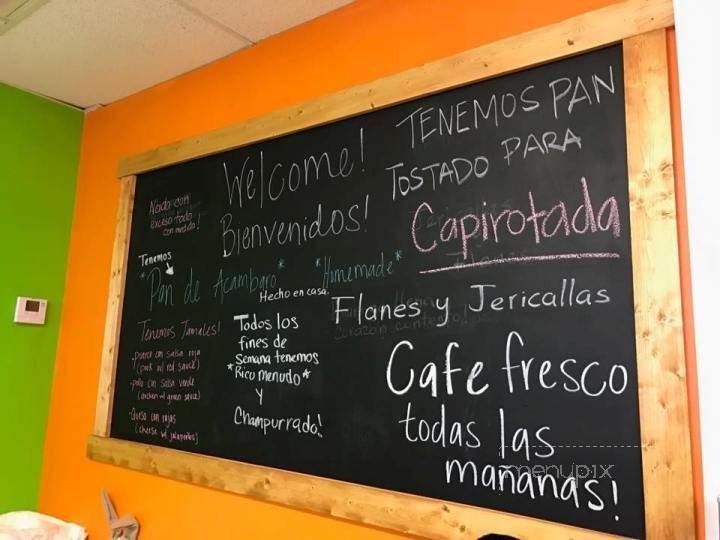 Nada con
exceso todo
con medida!
Welcome!
Bienvenidos!
TENEMOS PAN
TOSTADO PARA
Capirotada
Tenemos
*Pan de Acambaro*
*Homemade*
Hecho en casa.
Flanes y Jericallas
Tenemos Tamales!
-puerco con salsa roja
(pork w/ red sauce)
-pollo con salsa verde
(chicken w/ green sauce)
-Queso con rajas
(cheese w/ jalapeños)
Todos los
fines de
semana tenemos
*Rico menudo*
y
Champurrado!
Cafe fresco
todas las
mañanas!
menupix